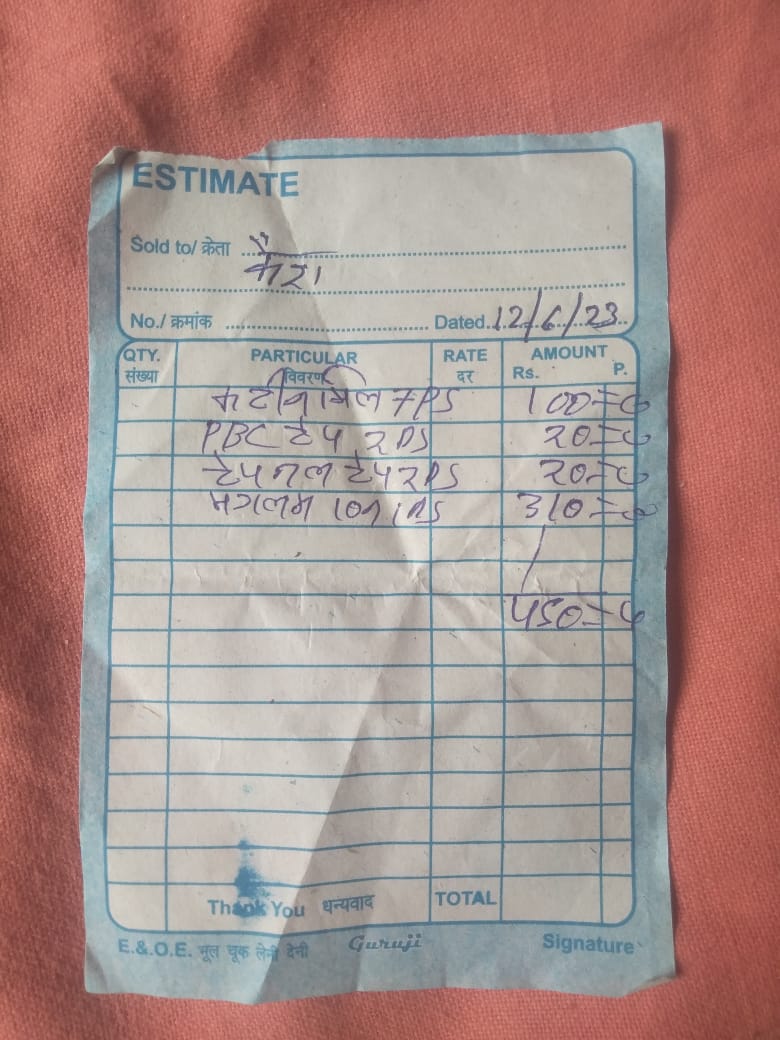 ESTIMATE
Sold to/ क्रेता कैश
No./ क्रमांक Dated. 12/6/23
QTY. संख्या PARTICULAR विवरण RATE दर AMOUNT Rs. P.
7 PS 100=0
PBC टेप 2 PS 20=0
टेप नल टेप 2 PS 20=0
310=0
450=0
Thank You धन्यवाद TOTAL
E.&.O.E. भूल चूक लेनी देनी Guruji Signature